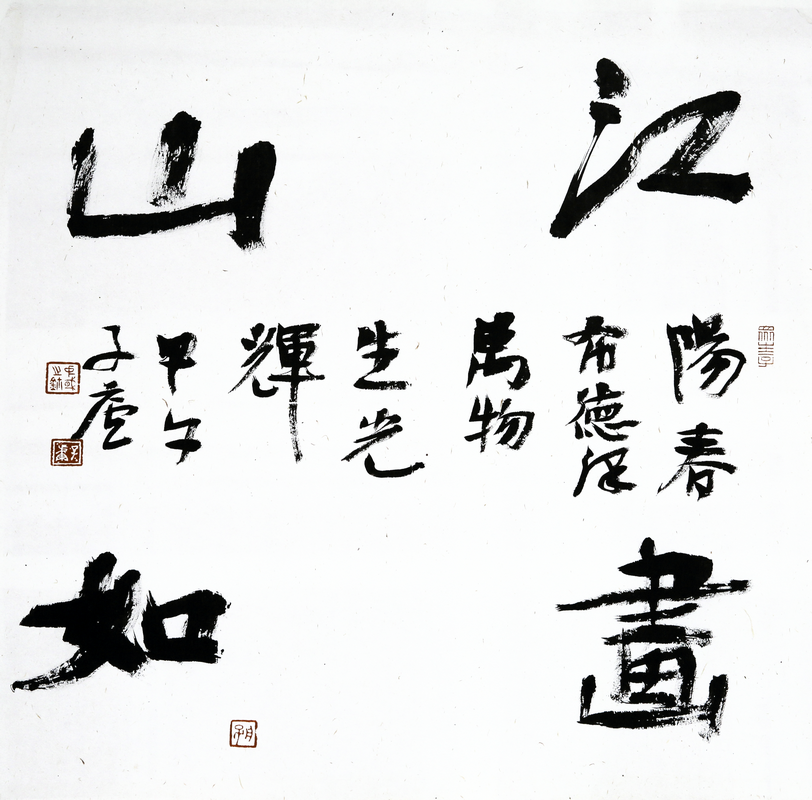 江山
如畫
陽春
布德澤
萬物
生光
輝
甲午
子